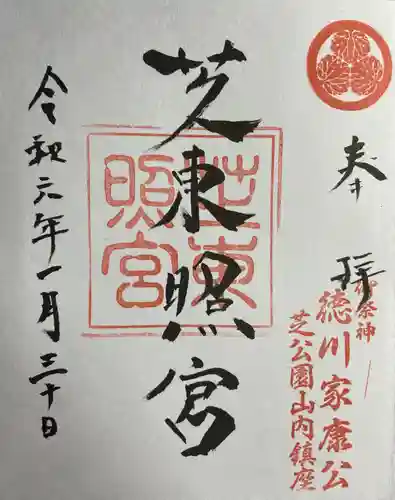 奉拝
御祭神
徳川家康公
芝公園山内鎮座
芝東照宮
芝東照宮
令和六年一月三十日